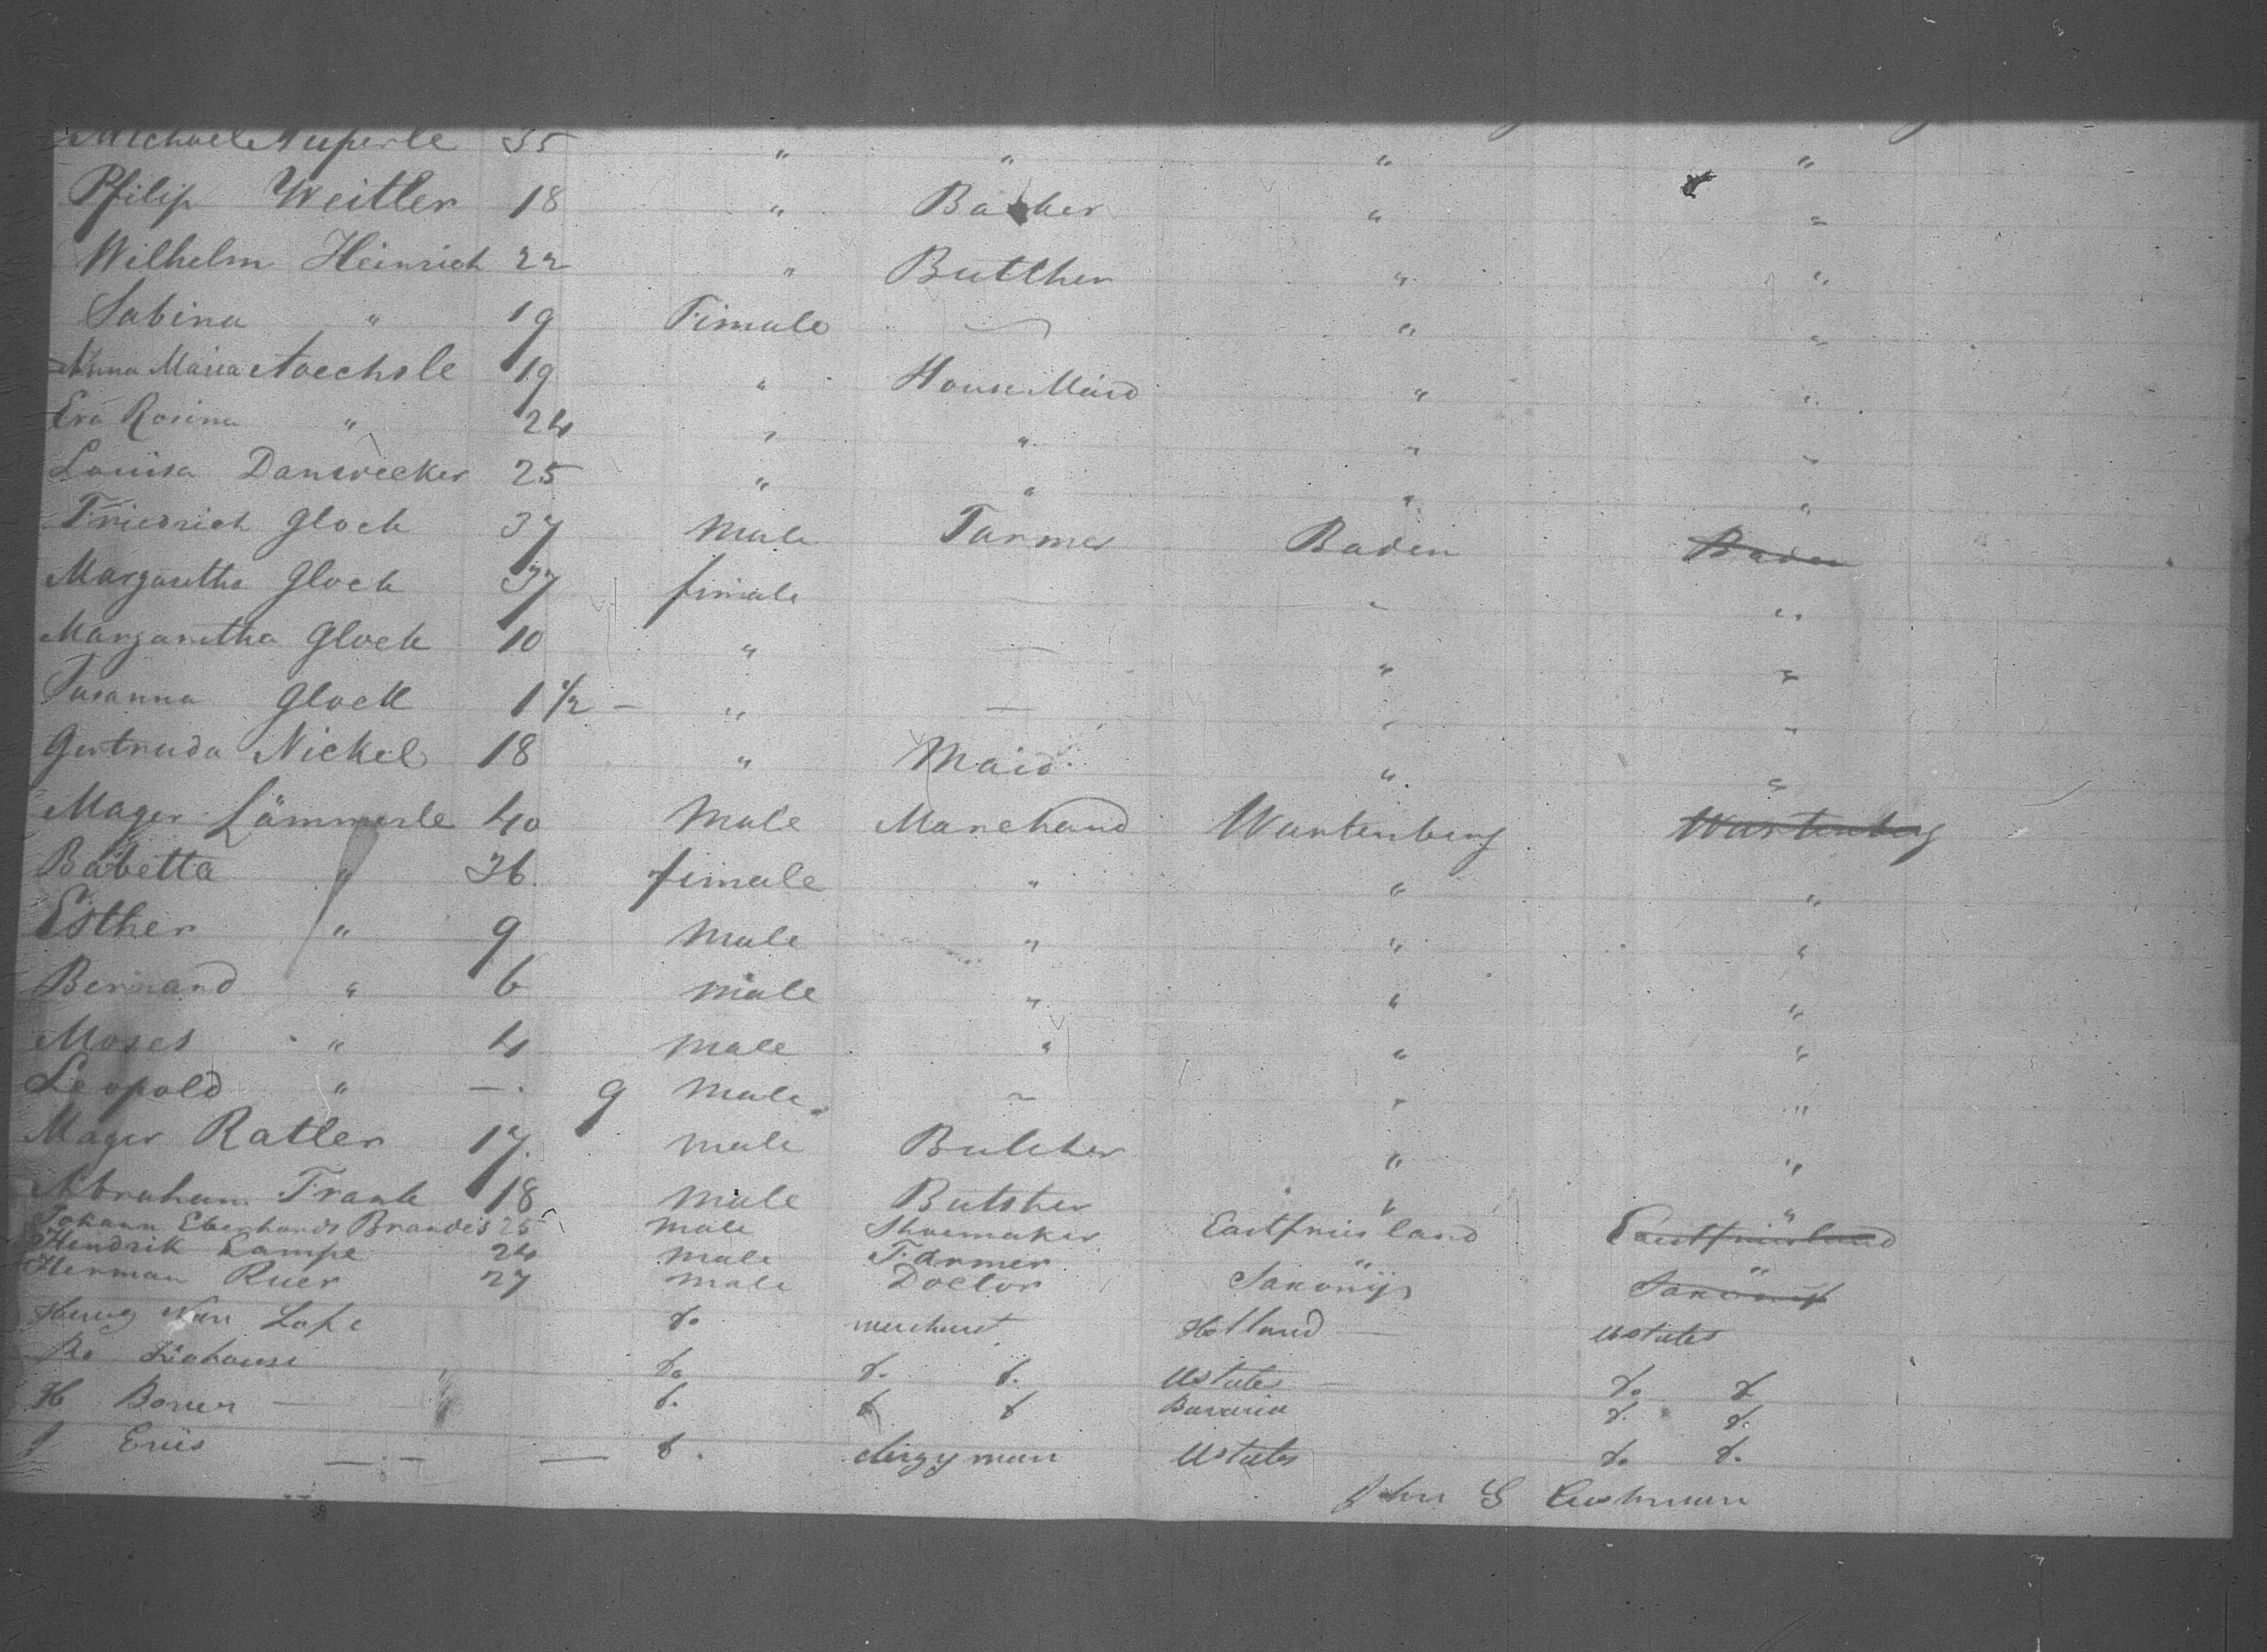 Michael Auperle 35 " " " "
Pfilip Weitler 18 " Bacher " "
Wilhelm Heinrich 22 " Butther " "
Sabina " 19 Fimale — " "
Anna Maria Aoechsle 19 " House Maid " "
Eva Rosina " 24 " " " "
Louisa Danwecker 25 " " " "
Friedrich Glock 37 Male Farmer Baden Baden
Margaretha Glock 37 fimale — " "
Margaretha Glock 10 " — " "
Susanna Glock 1 1/2 — " — " "
Gertruda Nickel 18 " Maid " "
Mager Lämmerle 40 Male Marchand Wurtenberg Wurtenberg
Babetta " 36 fimale " " "
Esther " 9 Male " " "
Bernard " 6 Male " " "
Moses " 4 Male " " "
Leopold " — 9 Male " " "
Mager Ratler 17 male Butcher " "
Abraham Frank 18 Male Butsher " "
Johann Eberhards Brandes 25 male Shoemaker Eastfriesland Eastfriesland
Hendrik Lampe 24 male Farmer " "
Herman Ruer 27 male Doctor Saxonÿ Saxonÿ
Van do merchant Holland — Ustates
do do do Ustates — do do
H do do do Bavaria do do
J — — — do clergyman Ustates do do
John G Cushman